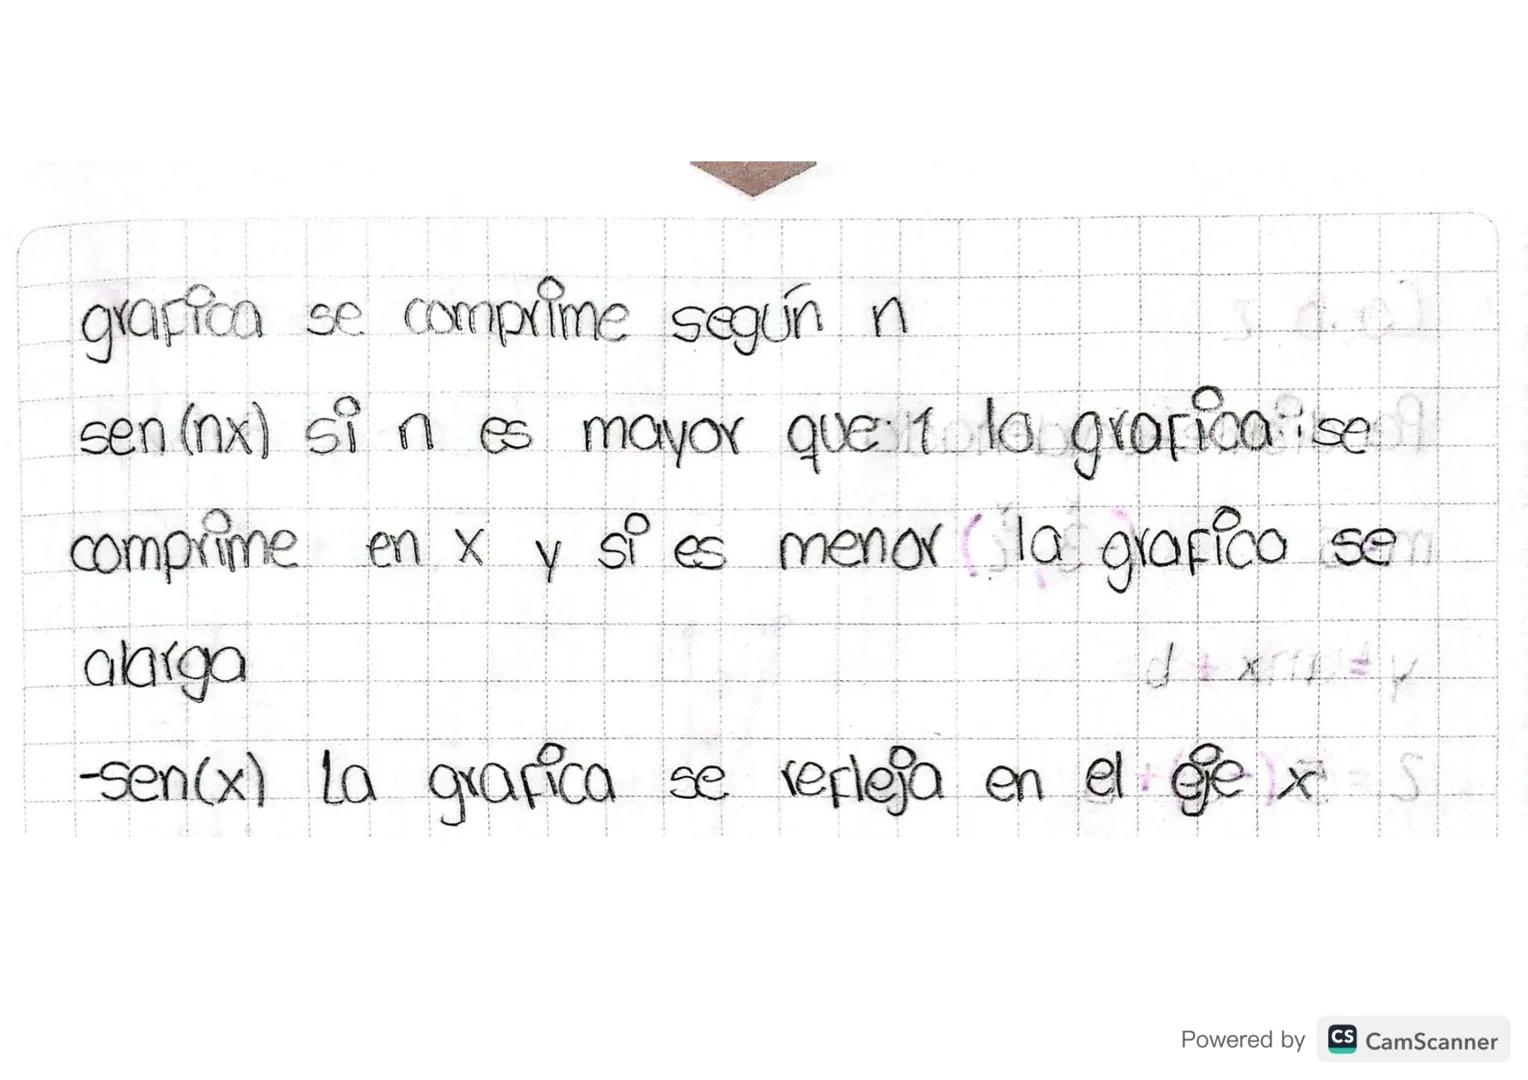 grafica se comprime según n
sen(nx) si n es mayor que 1 la grafica se
comprime en x y si es menor la grafica se
alarga
-sen(x) La grafica se refleja en el eje x
Powered by CS CamScanner